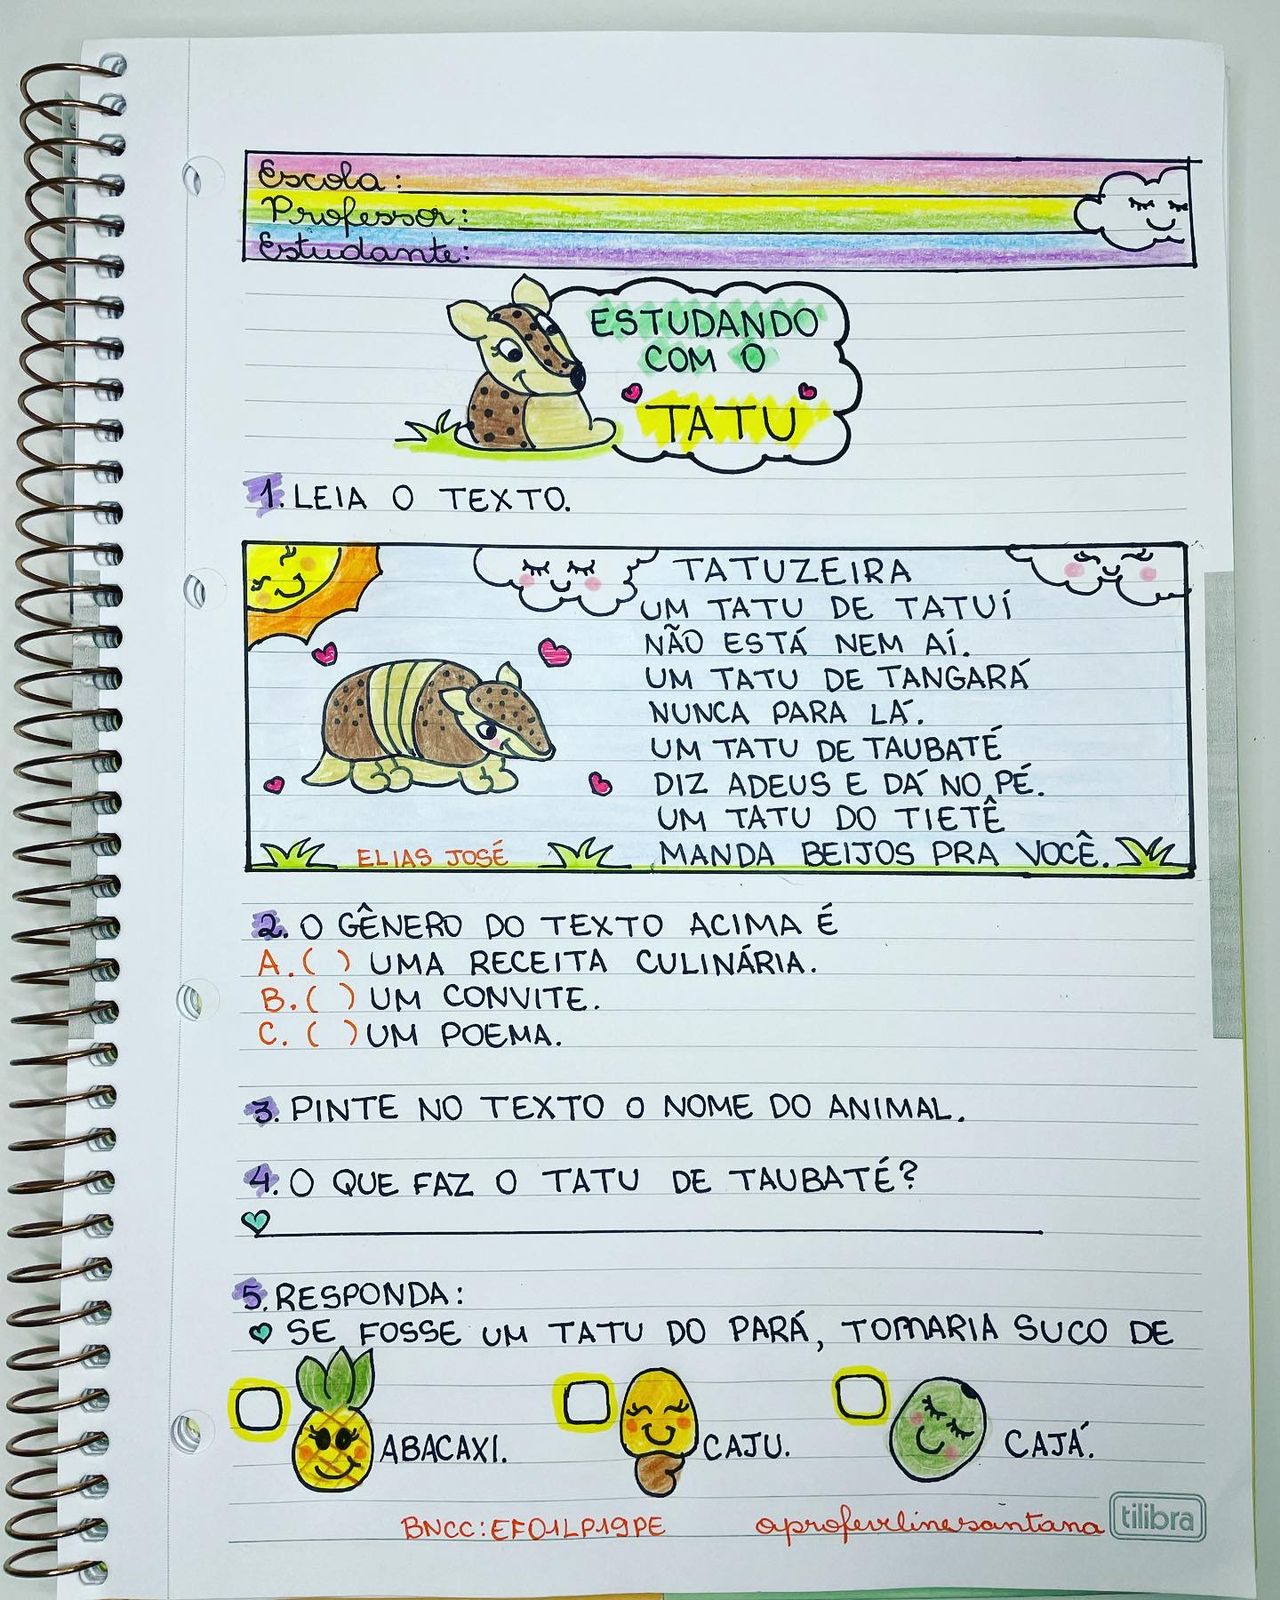 Escola:
Professor:
Estudante:
ESTUDANDO
COM O
TATU
1. LEIA O TEXTO.
TATUZEIRA
UM TATU DE TATUÍ
NÃO ESTÁ NEM AÍ.
UM TATU DE TANGARÁ
NUNCA PARA LÁ.
UM TATU DE TAUBATÉ
DIZ ADEUS E DÁ NO PÉ.
UM TATU DO TIETÊ
MANDA BEIJOS PRA VOCÊ.
ELIAS JOSÉ
2. O GÊNERO DO TEXTO ACIMA É
A. ( ) UMA RECEITA CULINÁRIA.
B. ( ) UM CONVITE.
C. ( ) UM POEMA.
3. PINTE NO TEXTO O NOME DO ANIMAL.
4. O QUE FAZ O TATU DE TAUBATÉ?
5. RESPONDA:
SE FOSSE UM TATU DO PARÁ, TOMARIA SUCO DE
ABACAXI. CAJU. CAJÁ.
BNCC: EF01LP19PE
tilibra